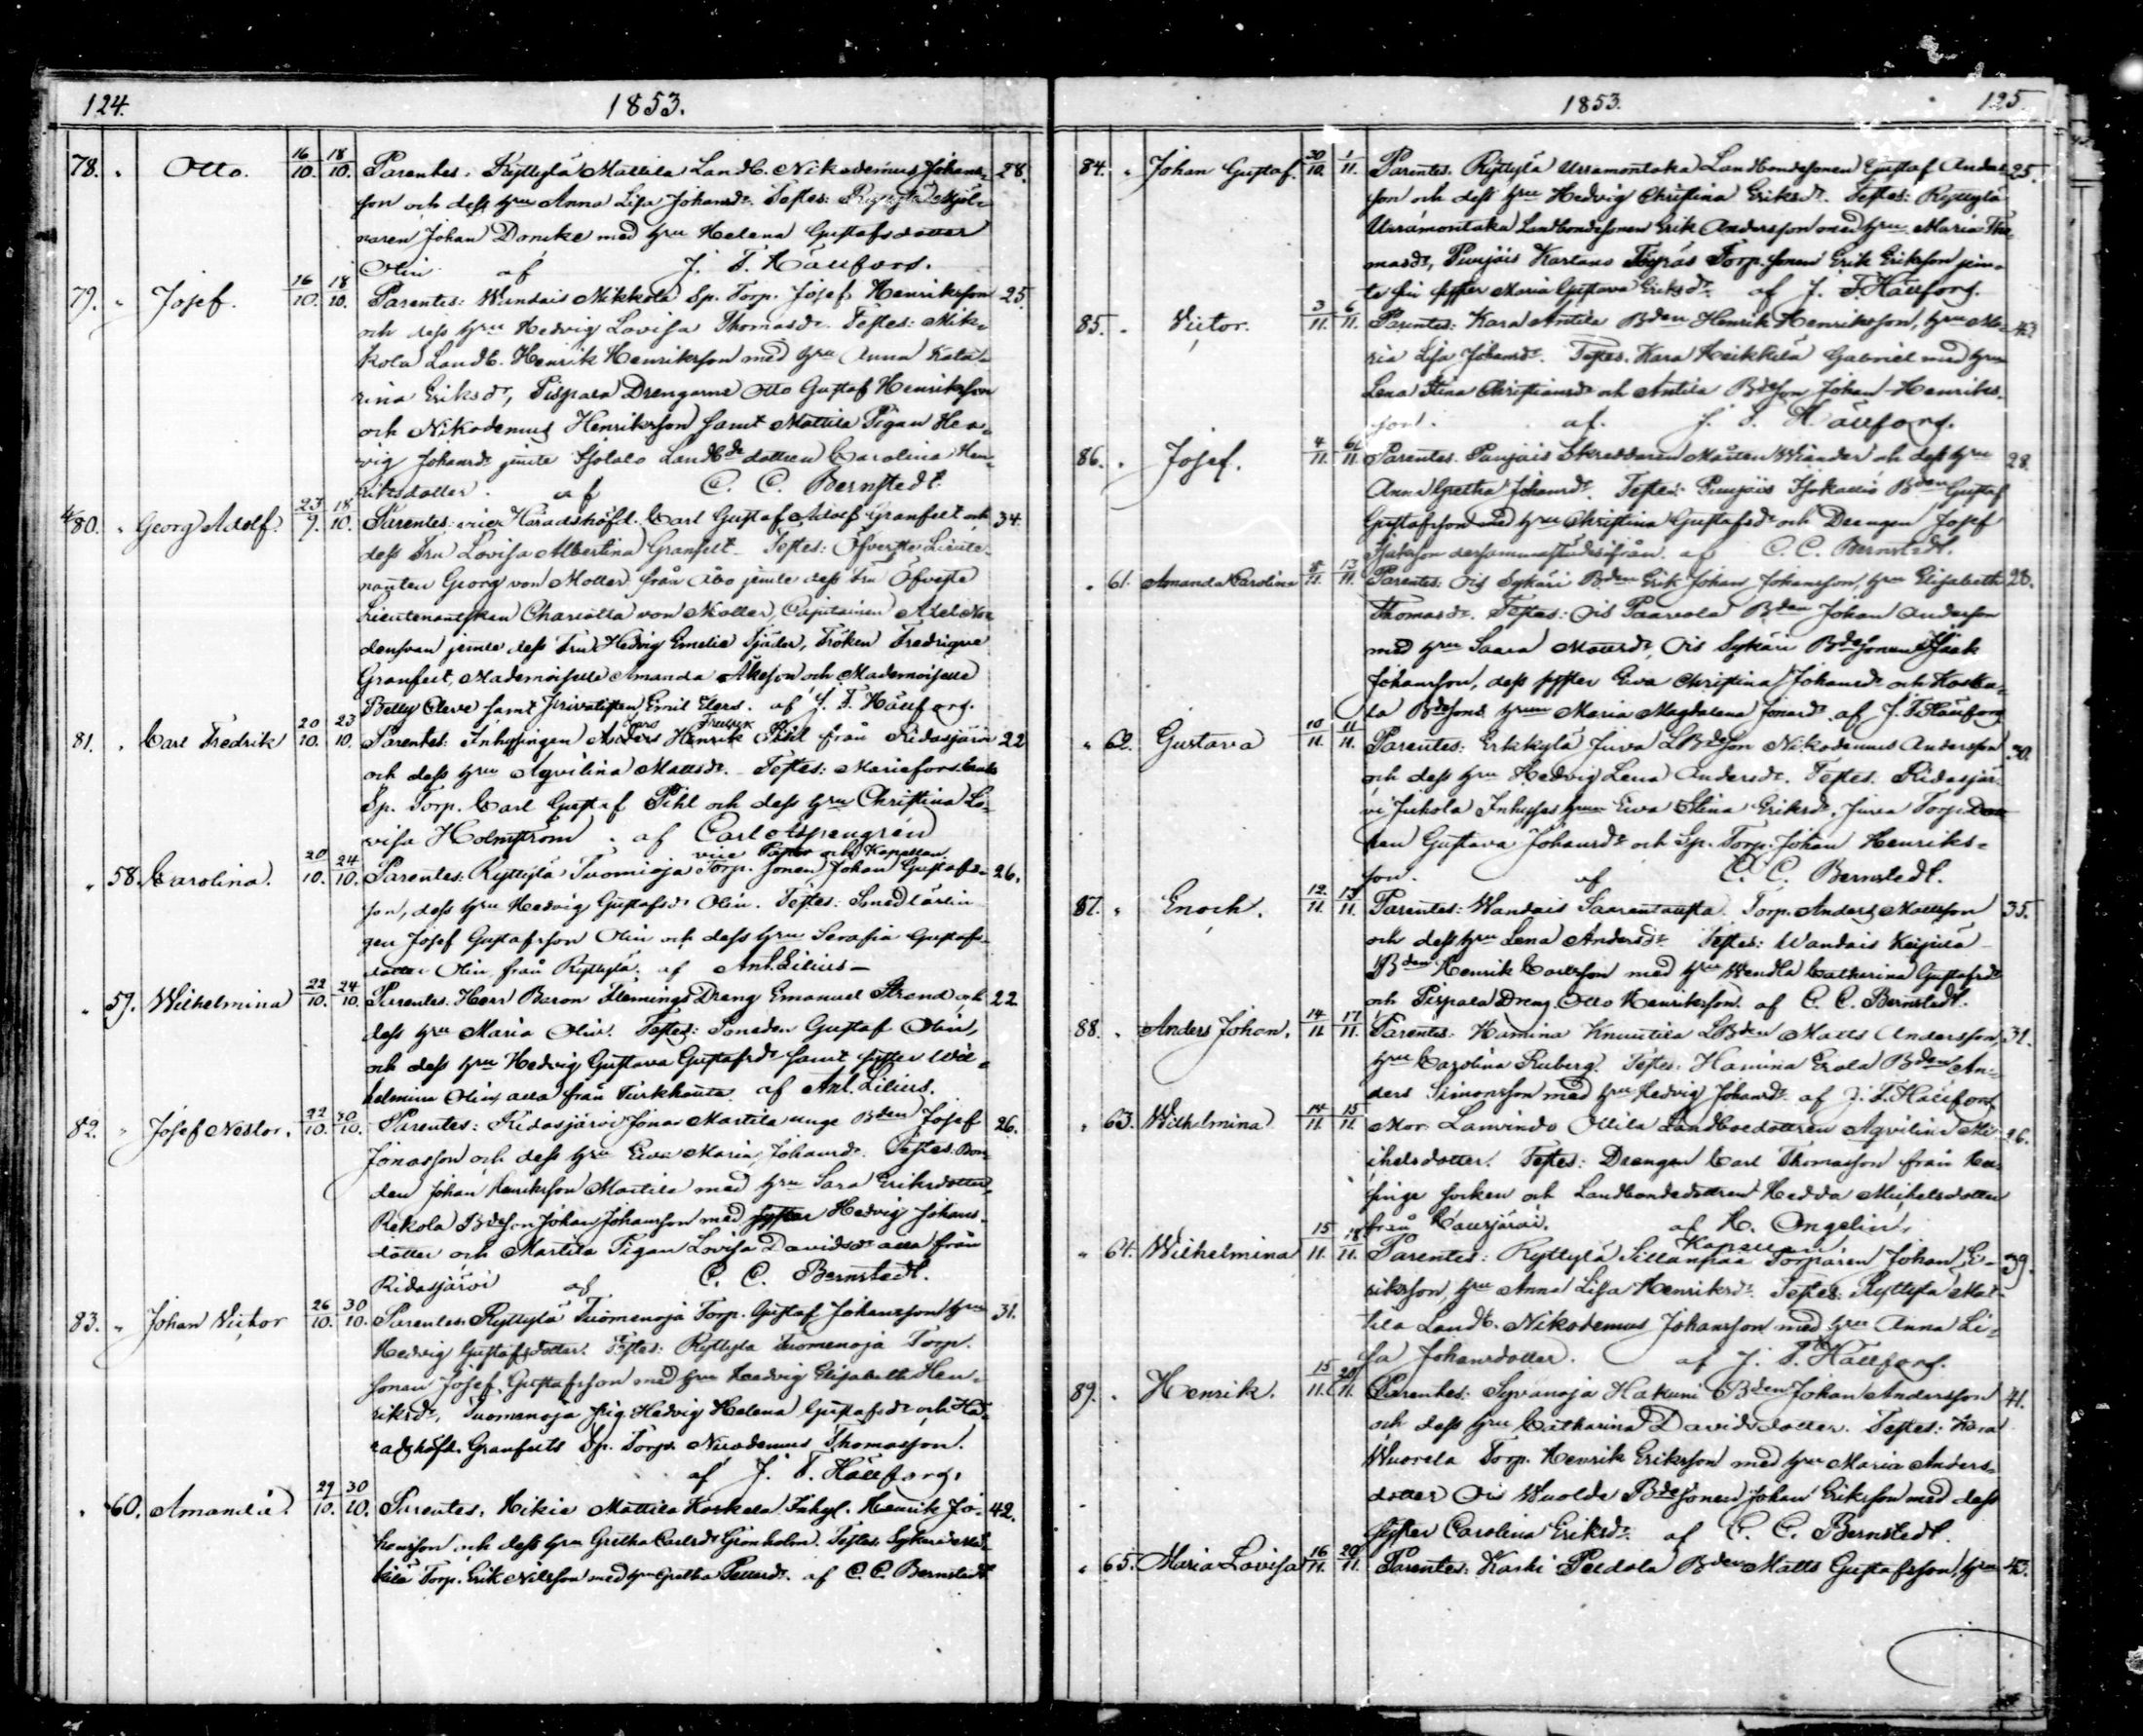 124. 1853.
78. " Otto. 16/10. 18/10. Parentes. Ryttylä Mattila Landb. Nikodemus Johans- 28.
son och dess hru Anna Lisa Johansdr. Testes: Ryttylä
naren Johan Domcke med hru Helena Gustafsdotter
Olin af J. F. Hällfors.
79. " Josef. 16/10. 18/10. Parentes: Wandais Mikkola Sp. Torp. Josef Henriksson 25.
och dess hru Hedvig Lovisa Thomasdr. Testes: Mik-
kola Landb. Henrik Henriksson med hru Anna Kata-
rina Eriksdr, Pispala Drengarne Otto Gustaf Henriksson
och Nikodemus Henriksson samt Mattila Pigan Hed-
vig Johansdr jemte Landbde dottren Carolina Hen-
riksdotter. af C. C. Bernstedt.
80. " Georg Adolf. 23/9. 18/10. Parentes: vice Häradshöfd. Carl Gustaf Adolf Granfelt och 34.
dess Fru Lovisa Albertina Granfelt. Testes: Öfverste Lieute-
nanten Georg von Moller från Åbo jemte dess Fru Öfverste
Lieutenantskan Charlotta von Moller, Capitainen Axel No-
densvan jemte dess Fru Hedvig Emelie Tjäder, Fröken Fredrique
Granfelt, Mademoiselle Amanda Åkeson och Mademoiselle
Betty Cleve samt Privatisten Emil Elers. af J. F. Hällfors.
81. " Carl Fredrik 20/10. 23/10. Parentes: Inhysingen Anders Henrik Pihl från Ridasjärvi 22
Lars Fredrik
och dess hru Aqvilina Mattsdr. Testes: Mariefors
Sp. Torp. Carl Gustaf Pihl och dess hru Christina Lo-
visa Holmström. af Carl
vice Pastor och Kapellan
" 58. Carolina. 20/10. 24/10. Parentes: Ryttylä Tuomioja Torp. sonen Johan Gustafs- 26.
son, dess hru Hedvig Gustafsdr Olin. Testes: Smedlärlin
gen Josef Gustafsson Olin och dess hru Serafia Gustafs-
dotter Olin från Ryttylä. af Ant. Lilius
" 59. Wilhelmina 22/10. 24/10. Parentes. Herr Baron Flemings Dreng Emanuel Strand och 22
dess hru Maria Olin. Testes: Smeden Gustaf Olin,
och dess hru Hedvig Gustava Gustafsdr samt syster Wil-
helmina Olin alla från Turkhauta. af Ant. Lilius.
82. " Josef Nestor. 22/10. 30/10. Parentes: Ridasjärvi Jonas Martila unge Bden Josef 26.
Jonasson och dess hru Eva Maria Johansdr. Testes. Bon-
den Johan Henriksson Martila med hru Sara Eriksdotter,
Rekola Bdeson Johan Johansson med syster Hedvig Johans-
dotter och Martila Pigan Lovisa Davidsdr alla från
Ridasjärvi af C. C. Bernstedt.
83. " Johan Victor 26/10. 30/10. Parentes Ryttylä Tuomenoja Torp. Gustaf Johansson hru 31.
Hedvig Gustafsdotter. Testes: Ryttylä Tuomenoja Torp.
sonen Josef Gustafsson med hru Hedvig Elisabeth Hen-
riksdr, Tuomenoja pig. Hedvig Helena Gustafsdr och Hä-
radshöfd. Granfelts Sp. Torp. Nicodemus Thomasson.
af J. F. Hällfors.
" 60. Amanda. 29/10. 30/10. Parentes. Hikia Mattila Koskela Inhys. Henrik Jo- 42.
hansson och dess hru Gretha Carlsdr Grönholm. Testes Sykäri
Torp. Erik Nilsson med hru Gretha Pettersdr. af C. C. Bernstedt
1853. 125.
84. " Johan Gustaf. 30/10. 1/11. Parentes. Ryttylä Urramontaka Landbondesonen Gustaf Anders- 25.
son och dess hru Hedvig Christina Eriksdr. Testes: Ryttylä
Urramontaka Landbondesonen Erik Andersson med hru Maria Tho-
masdr, Punjois Kartano Torp. sonen Erik Eriksson jem-
te sin syster Maria Gustava Eriksdr. af J. F. Hällfors.
85. " Victor. 3/11. 6/11. Parentes: Kara Antila Bden Henrik Henriksson, hru Ma- 43
ria Lisa Johansdr. Testes. Kara Heikkilä Gabriel med hru
Lena Stina Christiansdr och Antila Bdeson Johan Henriks-
son. af. J. F. Hällfors.
86. " Josef. 4/11. 6/11. Parentes. Punjois Skreddaren Mårten Wiander och dess hru 28.
Anna Gretha Johansdr. Testes: Punjois Bden Gustaf
Gustafsson med hru Christina Gustafsdr och Drengen Josef
dersammastädesifrån. af C. C. Bernstedt.
" 61. Amanda Carolina 8/11. 13/11. Parentes: Ois Sykäri Bden Erik Johan Johansson, hru Elisabeth 28.
Thomasdr. Testes: Ois Paavola Bden Johan Andersson
med hru Saara Mattsdr, Ois Sykäri Bdesonen Isaak
Johansson, dess syster Eva Christina Johansdr och Koske-
la Bdesons hrun Maria Magdalena Jonasdr. af J. F. Hällfors
" 62. Gustava 10/11. 11/11. Parentes: Erkkylä Juva LBdeson Nikodemus Andersson 30.
och dess hru Hedvig Lena Andersdr. Testes: Ridasjär-
vi Jukola Inhyses hrun Eva Stina Eriksdr. Juva Torp.
Gustava Johansdr och Sp. Torp. Johan Henriks-
son. af C. C. Bernstedt.
87. " Enoch. 12/11. 13/11. Parentes: Wandais Torp. Anders Mattsson 35.
och dess hru Lena Andersdr. Testes: Wandais
Bden Henrik Carlsson med hru Wendla Catharina Gustafsdr
och Pispala Dreng. Otto Henriksson. af C. C. Bernstedt.
88. " Anders Johan. 14/11. 17/11. Parentes: Hamina Knuutila LBden Matts Andersson, 31.
hru Carolina Ruberg. Testes: Hamina Erola Bden An-
ders Simonsson med hru Hedvig Johansdr af J. F. Hällfors.
" 63. Wilhelmina 14/11. 15/11. Mor. Lanvindo Ollila Landboedottren Aqvilina Mi- 26.
chelsdotter. Testes: Drengen Carl Thomasson från Hau-
singe socken och Landbondedottren Hedda Michelsdotter
från Hausjärvi. af H. Ongelin,
Kapellan
" 64. Wilhelmina 15/11. 18/11. Parentes: Ryttylä Sillanpää Torparen Johan E- 39.
riksson, hru Anna Lisa Henriksdr. Testes: Ryttylä Mat-
tila Landb. Nikodemus Johansson med hru Anna Li-
sa Johansdotter. af J. F. Hällfors.
89. " Henrik. 15/11. 20/11. Parentes: Syvänoja Hakuni Bden Johan Andersson 41.
och dess hru Catharina Davidsdotter. Testes: Kara
Wuorela Torp. Henrik Eriksson med hru Maria Anders-
dotter Ois Wuolde Bdesonen Johan Eriksson med dess
syster Carolina Eriksdr. af C. C. Bernstedt.
" 65. Maria Lovisa 16/11. 20/11. Parentes: Karhi Peldola Bden Matts Gustafsson, hru 43.